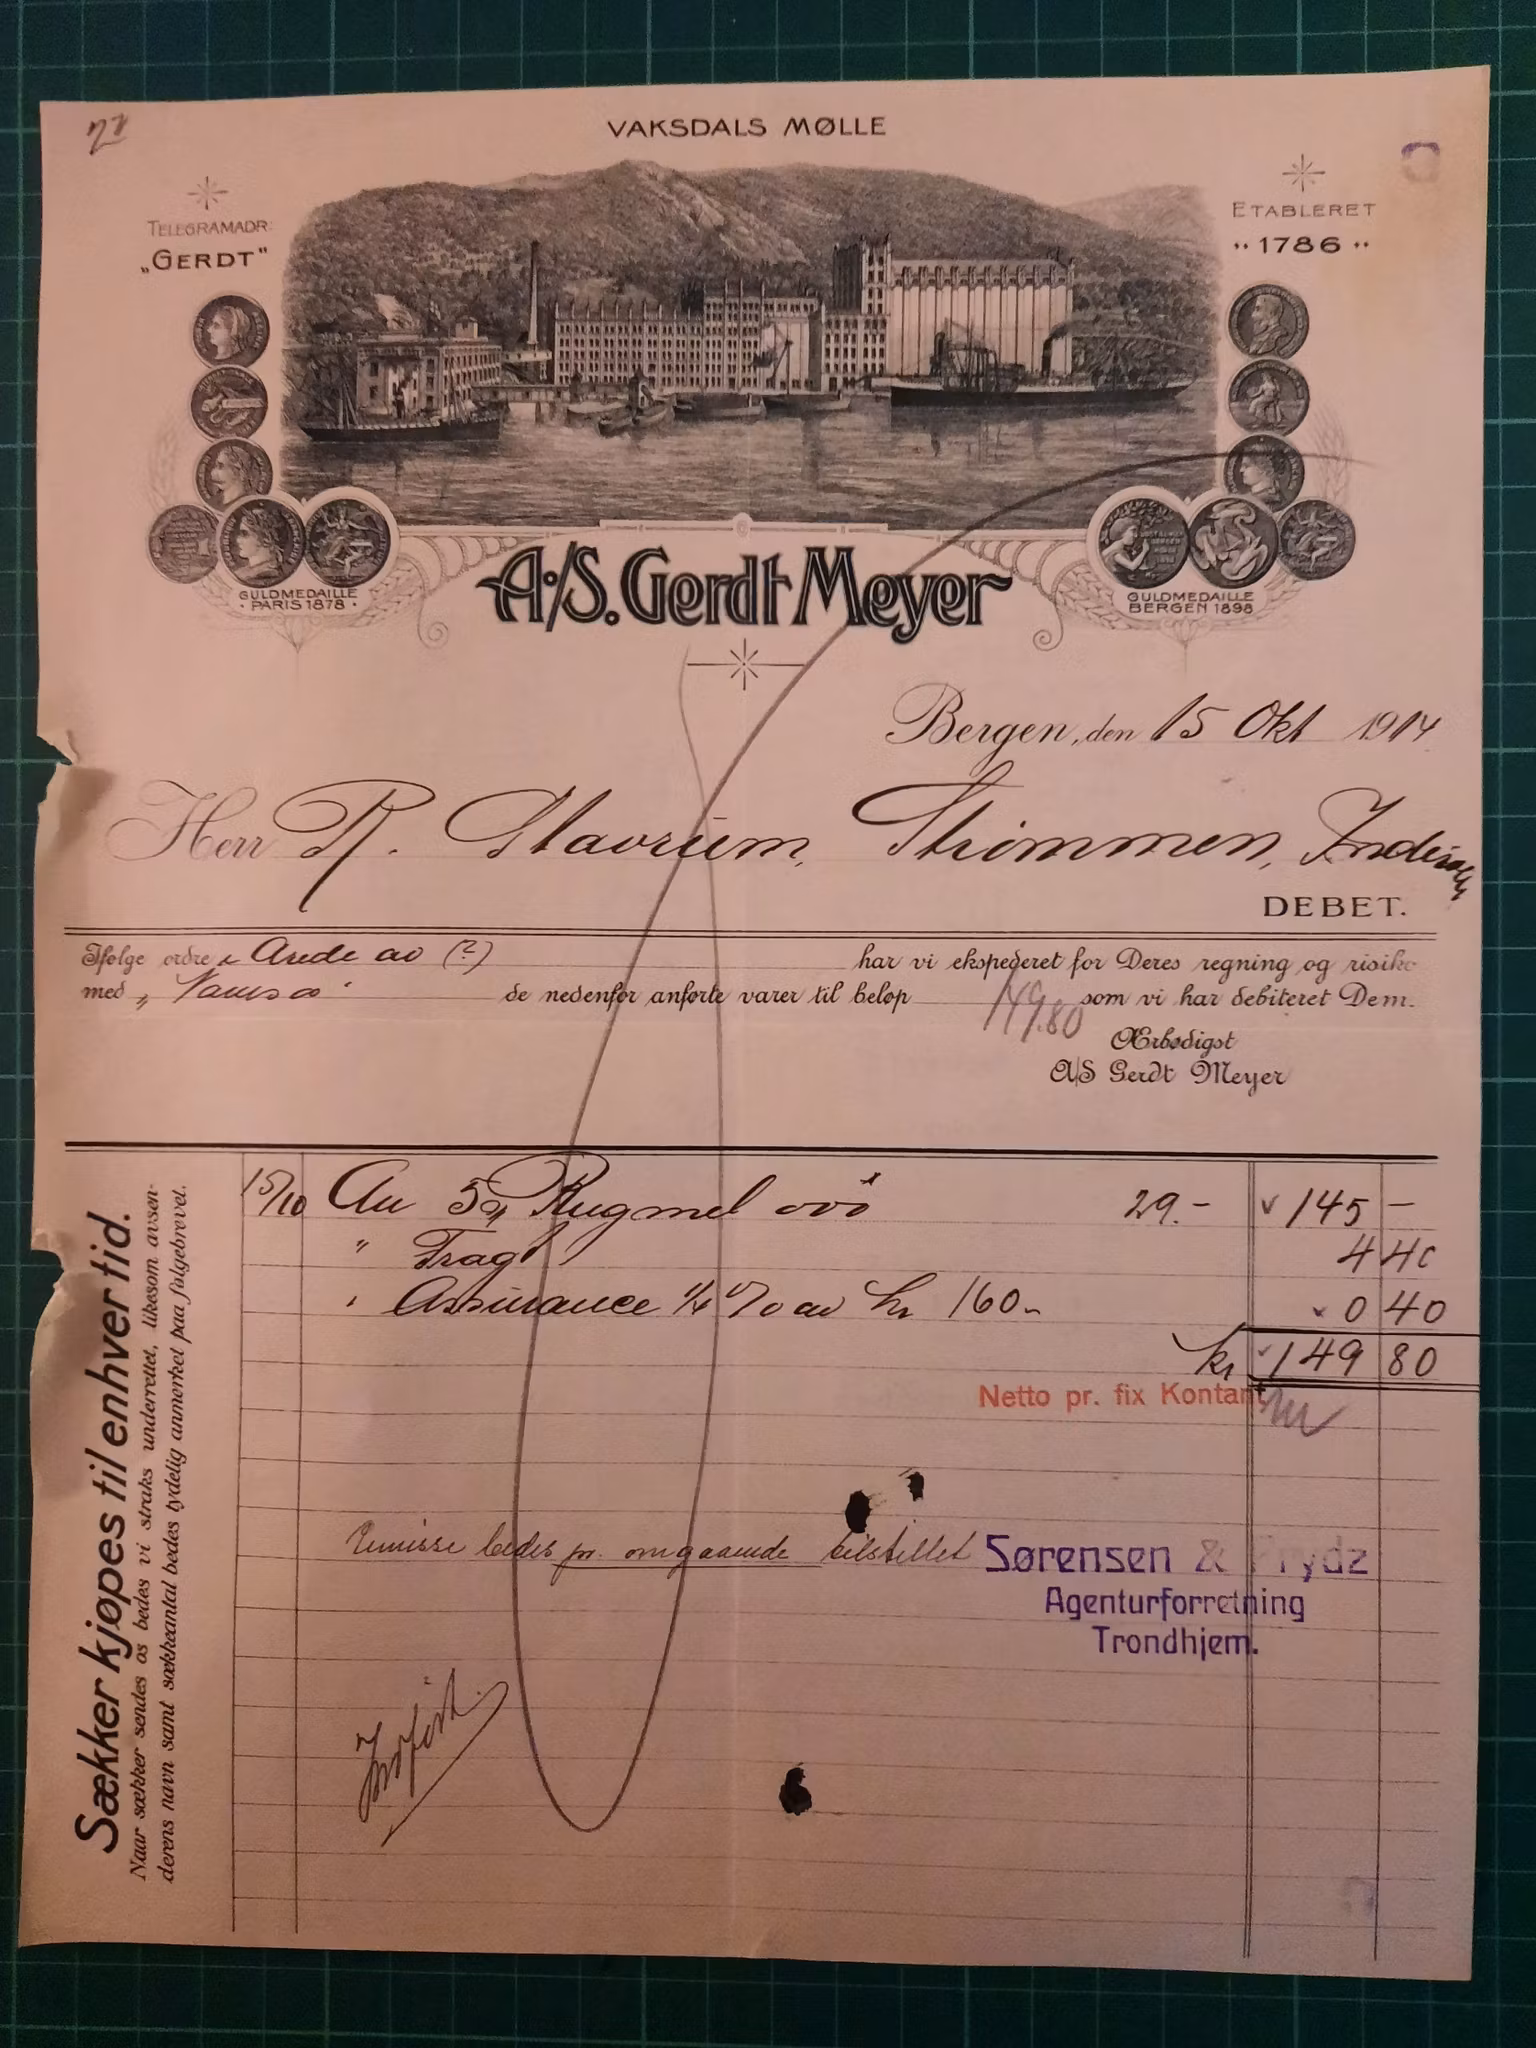 VAKSDALS MØLLE
TELEGRAMADR:
„GERDT"
ETABLERET
1786
GULDMEDAILLE
PARIS 1878
GULDMEDAILLE
BERGEN 1898
A/S. Gerdt Meyer
Bergen, den 15 Okt 1914
Herr R. Stavrum, Strømmen, Inderøen
DEBET.
Ifølge ordre av (?) har vi ekspederet for Deres regning og risiko
med de nedenfor anførte varer til beløp 149.80 som vi har debiteret Dem.
Ærbødigst
A/S Gerdt Meyer
15/10 An 5 Rugmel 29.- 145 -
" Fragt 4 40
" Assurance 1/4 % av kr 160.- 0 40
kr 149 80
Netto pr. fix Kontant
Remisse bedes pr. omgaaende tilstillet Sørensen & Frydz
Agenturforretning
Trondhjem.
Sækker kjøpes til enhver tid.
Naar sækker sendes os bedes vi straks underrettet, likesom avsen-
derens navn samt sækkeantal bedes tydelig anmerket paa følgebrevet.